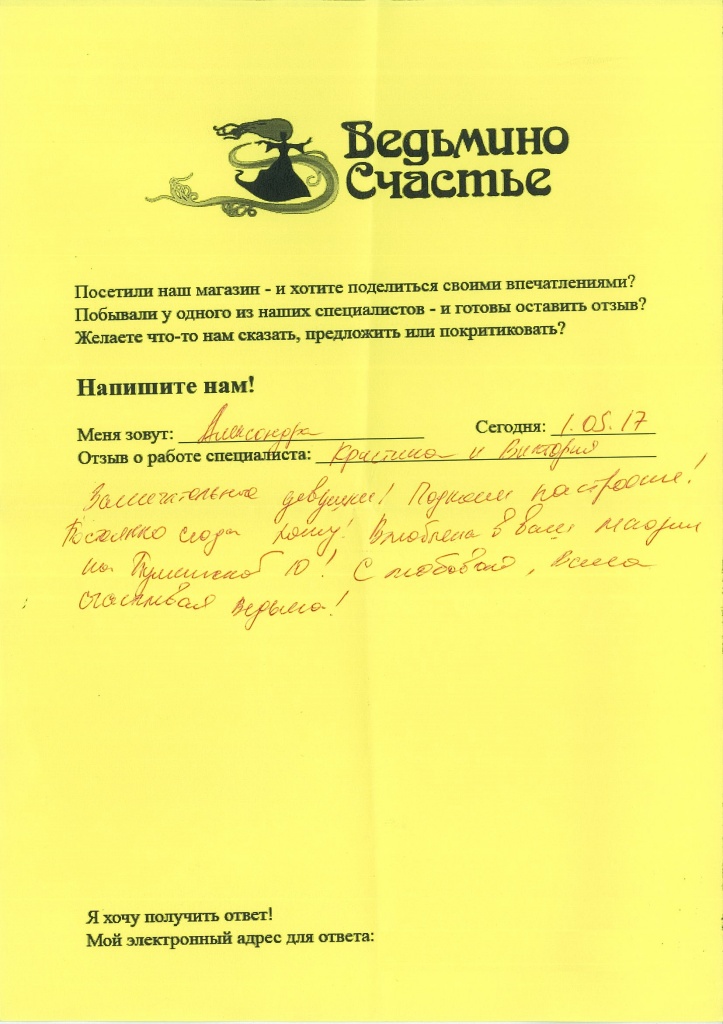 Ведьмино
Счастье
Посетили наш магазин - и хотите поделиться своими впечатлениями?
Побывали у одного из наших специалистов - и готовы оставить отзыв?
Желаете что-то нам сказать, предложить или покритиковать?
Напишите нам!
Меня зовут: Александра Сегодня: 1.05.17
Отзыв о работе специалиста: Кристина и Виктория
Замечательные девушки! Подняли настроение!
Постоянно сюда хожу! Влюблена в ваш магазин
на Пушкинской 10! С любовью, Ваша
счастливая ведьма!
Я хочу получить ответ!
Мой электронный адрес для ответа: